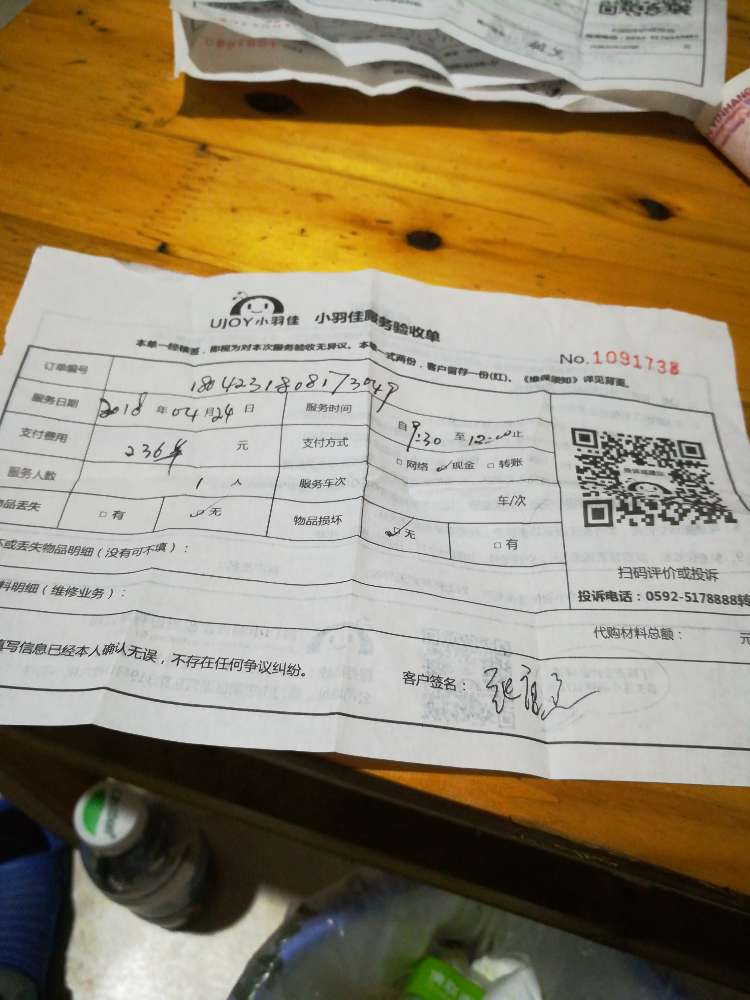 UJOY小羽佳 小羽佳服务验收单
本单一经核签，即视为对本次服务验收无异议。本单一式两份，客户留存一份(红)。《维保须知》详见背面。
No.1091738
订单编号 1804231808173049
服务日期 2018年04月24日 服务时间 自9:30至12:00止
支付费用 236 元 支付方式 □网络 ☑现金 □转账
服务人数 1人 服务车次 车/次
物品丢失 □有 ☑无 物品损坏 ☑无 □有
坏或丢失物品明细（没有可不填）：
料明细（维修业务）：
扫码评价或投诉
投诉电话：0592-5178888转
代购材料总额： 元
填写信息已经本人确认无误，不存在任何争议纠纷。
客户签名：